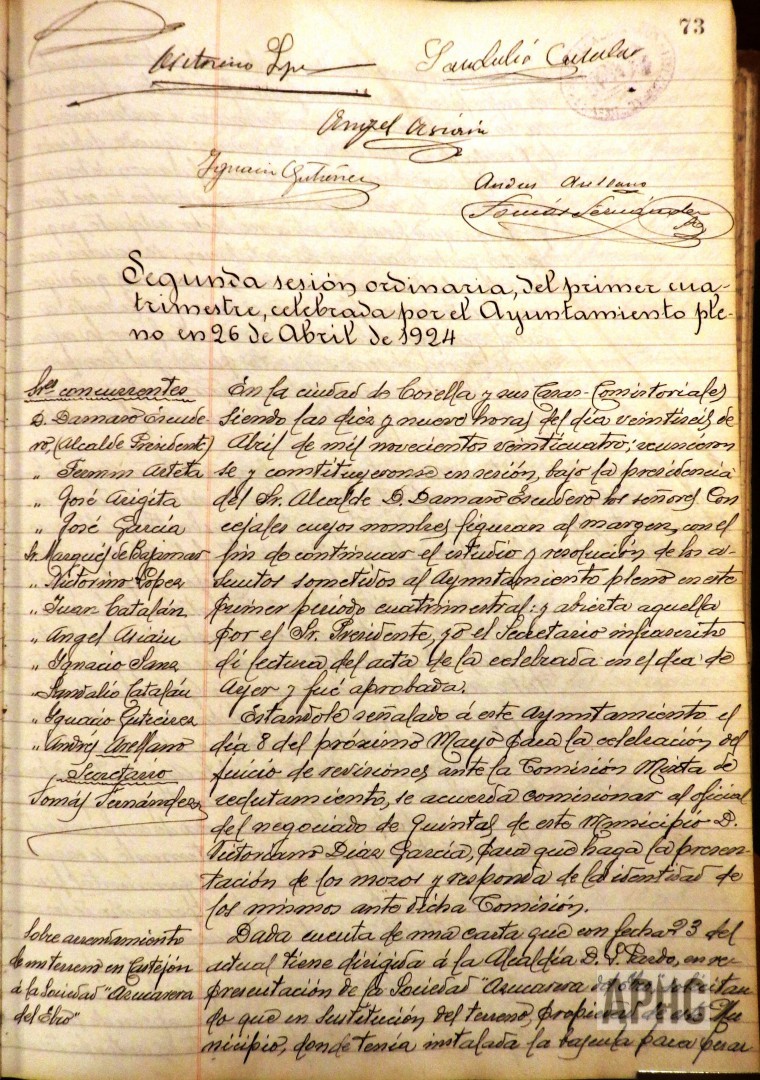 73
Victorino Lpz
Sandalio Catalan
Angel Asiain
Ignacio Gutiérrez
Andres Arellano
Tomás Fernández
Segunda sesión ordinaria, del primer cua-
trimestre, celebrada por el Ayuntamiento ple-
no en 26 de Abril de 1924
Sres concurrentes
D. Damaso Escude-
ro, (Alcalde Presidente)
" Fermin Arteta
" José Arigita
" José García
Sr. Marqués de Bajamar
" Victorino López
" Juan Catalán
" Angel Asiain
" Ignacio Sanz
" Sandalio Catalán
" Ignacio Gutiérrez
" Andrés Arellano
Secretario
Tomás Fernández
En la ciudad de Corella y sus Casas-Consistoriales
siendo las diez y nueve horas del día veintiseis de
Abril de mil novecientos veinticuatro; reunieron
se y constituyeronse en sesión, bajo la presidencia
del Sr. Alcalde D. Damaso Escudero los señores Con
cejales cuyos nombres figuran al margen, con el
fin de continuar el estudio y resolución de los a-
suntos sometidos al Ayuntamiento pleno en este
primer periodo cuatrimestral: y abierta aquella
por el Sr. Presidente, yo el Secretario infrascrito
dí lectura del acta de la celebrada en el día de
Ayer y fué aprobada.
Estandole señalado á este Ayuntamiento el
día 8 del próximo Mayo para la celebración del
juicio de revisiones ante la Comisión Mixta de
reclutamiento, se acuerda comisionar al oficial
del negociado de Quintas de este Municipio D.
Victoriano Diaz García, para que haga la presen-
tación de los mozos y responda de la identidad de
los mismos ante dicha Comisión.
Sobre arrendamiento
de un terreno en Castejón
á la Sociedad "Azucarera
del Ebro"
Dada cuenta de una carta que con fecha 23 del
actual tiene dirigida á la Alcaldía D. V. Pardo, en re-
presentación de la Sociedad "Azucarera del Ebro" solicitan
do que en sustitución del terreno, propiedad de este Mu
nicipio, donde tenía instalada la bascula para pesar
APHC